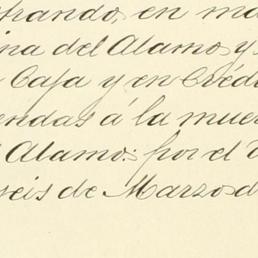 trando en ma
ina del Alamo y
Caja y en Créd
endas á la muer
Alamo: por el
seis de Marzo d